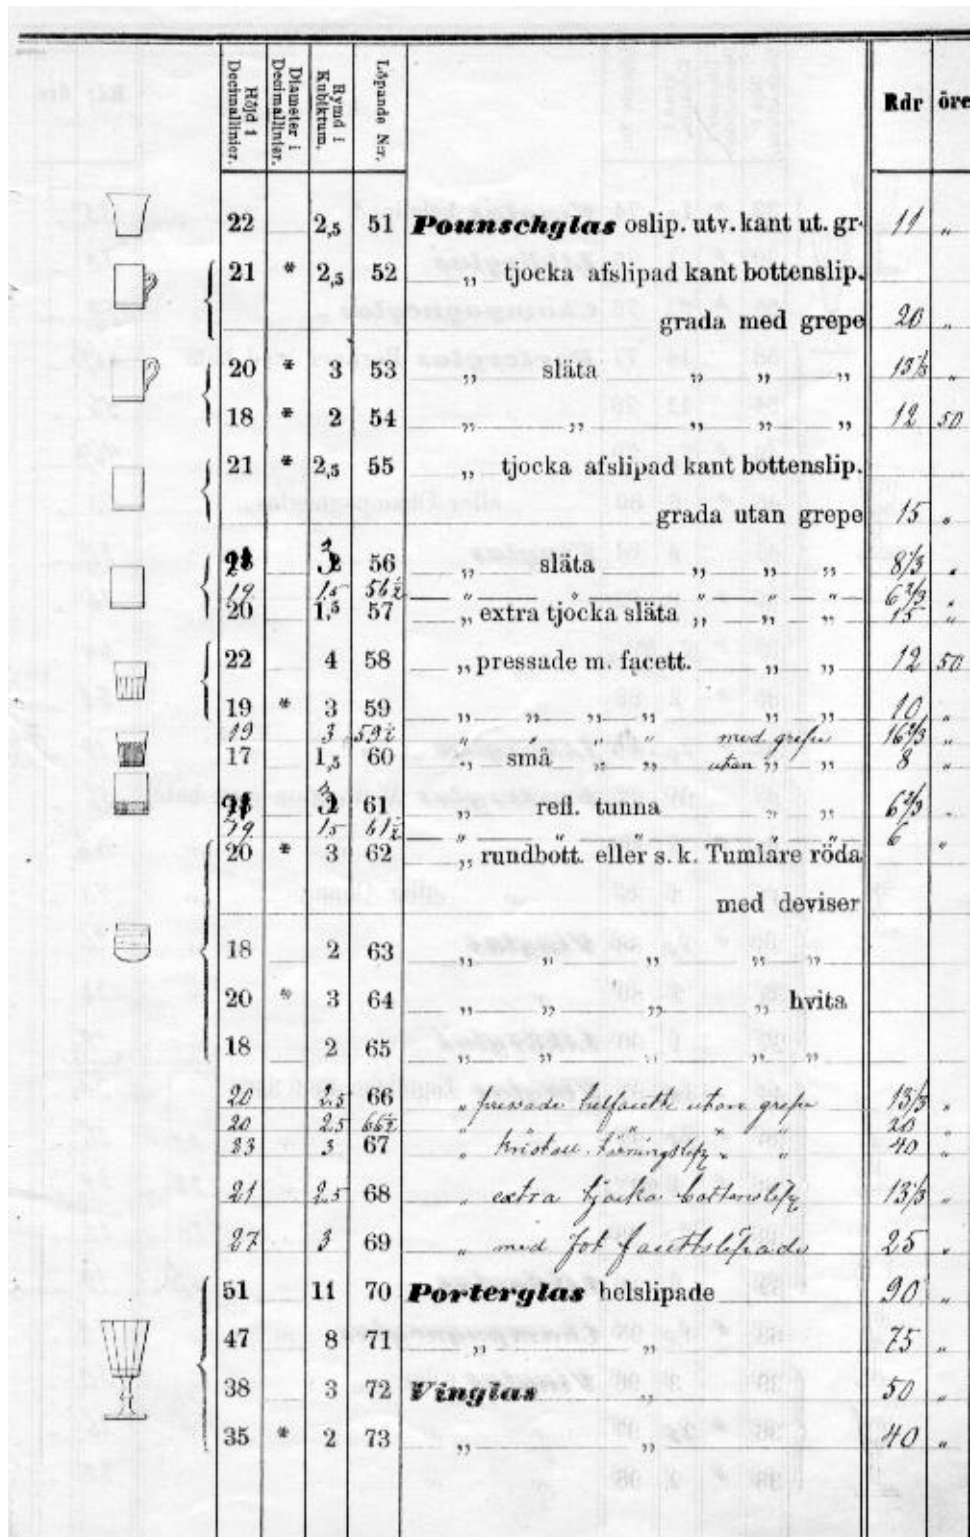 Höjd i Decimallinier. Diameter i Decimallinier. Rymd i Kubiktum. Löpande N:r. Rdr öre
22 2,5 51 Pounschglas oslip. utv. kant ut. gr. 11 „
21 * 2,5 52 „ tjocka afslipad kant bottenslip.
grada med grepe 20 „
20 * 3 53 „ släta „ „ „ 13 1/3 „
18 * 2 54 „ „ „ „ „ 12 50
21 * 2,5 55 „ tjocka afslipad kant bottenslip.
grada utan grepe 15 „
56 „ släta „ „ „ 8 1/3 „
19 1,5 56½ „ „ „ „ „ 6 2/3 „
20 1,5 57 „ extra tjocka släta „ „ „ 15 „
22 4 58 „ pressade m. facett. „ „ 12 50
19 * 3 59 „ „ „ „ „ „ 10 „
19 3 59½ „ „ „ „ med grepe 16 2/3 „
17 1,5 60 „ små „ „ utan „ „ 8 „
61 „ refl. tunna „ „ 6 2/3 „
19 1,5 61½ „ „ „ „ „ 6 „
20 * 3 62 „ rundbott. eller s. k. Tumlare röda
med deviser
18 2 63 „ „ „ „ „
20 * 3 64 „ „ „ „ hvita
18 2 65 „ „ „ „ „
20 2,5 66 „ pressade utan grepe 13 1/3 „
20 2,5 66½ „ „ „ 20 „
23 3 67 „ „ „ 40 „
21 2,5 68 „ extra tjocka bottenslip 13 1/3 „
27 3 69 „ med fot facettslipade 25 „
51 11 70 Porterglas helslipade 90 „
47 8 71 „ „ 75 „
38 3 72 Vinglas „ 50 „
35 * 2 73 „ „ 40 „